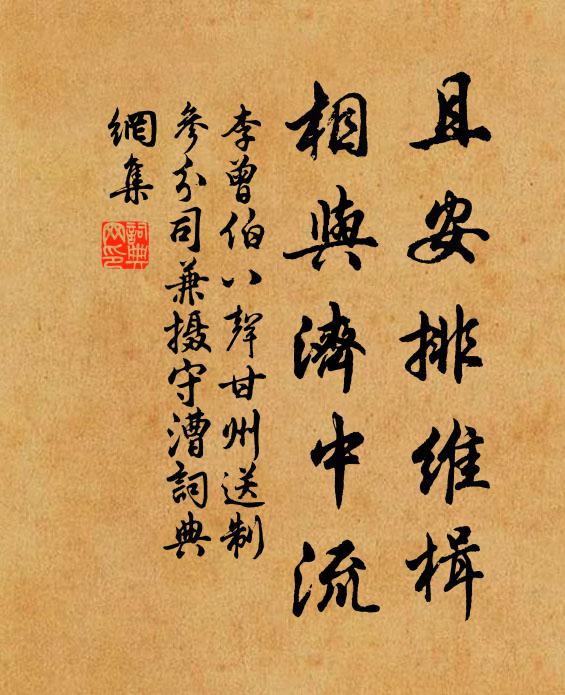 且安排維楫
相與濟中流
李曾伯八聲甘州送制
參分司兼摄守漕詞典
網集
詞典
网印